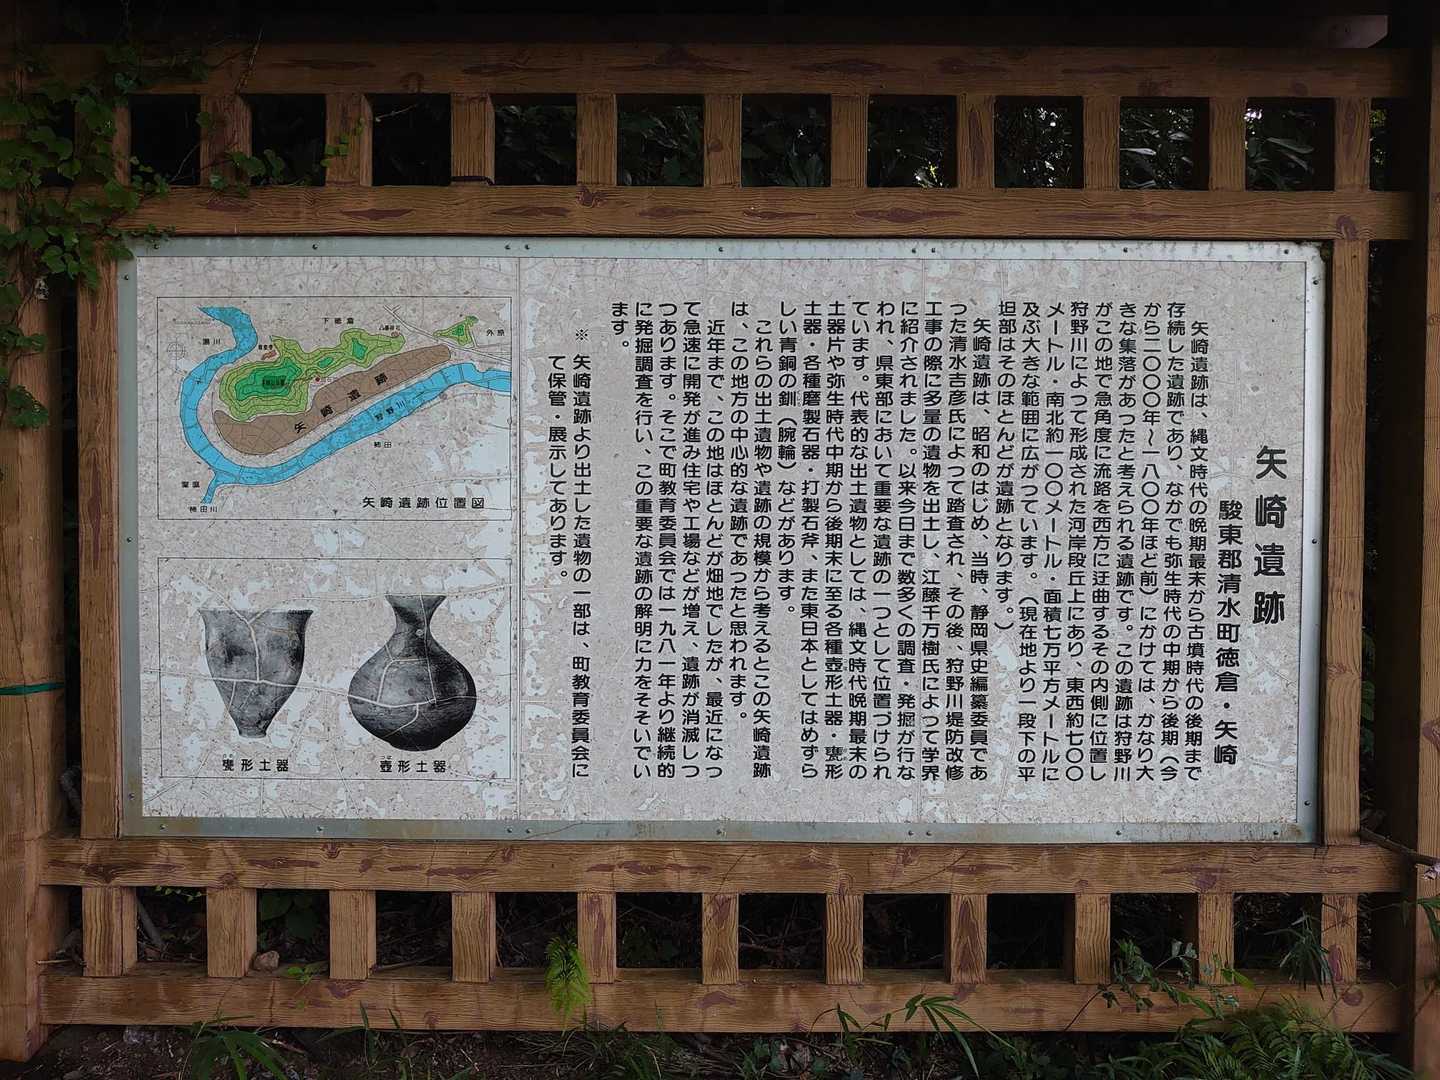 矢崎遺跡
駿東郡清水町徳倉・矢崎
矢崎遺跡は、縄文時代の晩期最末から古墳時代の後期まで
存続した遺跡であり、なかでも弥生時代の中期から後期（今
から二〇〇〇年～一八〇〇年ほど前）にかけては、かなり大
きな集落があったと考えられる遺跡です。この遺跡は狩野川
がこの地で急角度に流路を西方に迂曲するその内側に位置し
狩野川によって形成された河岸段丘上にあり、東西約七〇〇
メートル・南北約一〇〇メートル・面積七万平方メートルに
及ぶ大きな範囲に広がつています。（現在地より一段下の平
坦部はそのほとんどが遺跡となります。）
矢崎遺跡は、昭和のはじめ、当時、静岡県史編纂委員であ
つた清水吉彦氏によって踏査され、その後、狩野川堤防改修
工事の際に多量の遺物を出土し、江藤千万樹氏によって学界
に紹介されました。以来今日まで数多くの調査・発掘が行な
われ、県東部において重要な遺跡の一つとして位置づけられ
ています。代表的な出土遺物としては、縄文時代晩期最末の
土器片や弥生時代中期から後期末に至る各種壺形土器・甕形
土器・各種磨製石器・打製石斧、また東日本としてはめずら
しい青銅の釧（腕輪）などがあります。
これらの出土遺物や遺跡の規模から考えるとこの矢崎遺跡
は、この地方の中心的な遺跡であったと思われます。
近年まで、この地はほとんどが畑地でしたが、最近になっ
て急速に開発が進み住宅や工場などが増え、遺跡が消滅しつ
つあります。そこで町教育委員会では一九八一年より継続的
に発掘調査を行い、この重要な遺跡の解明に力をそそいでい
ます。
※ 矢崎遺跡より出土した遺物の一部は、町教育委員会に
て保管・展示してあります。
下徳倉
外原
八幡神社
黄瀬川
矢崎遺跡
狩野川
柿田
柿田川
矢崎遺跡位置図
甕形土器
壺形土器